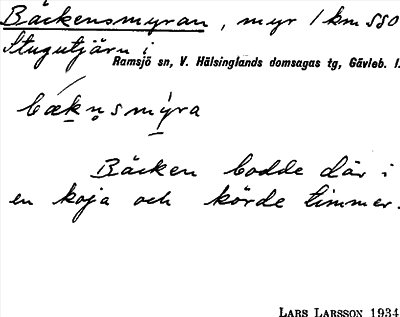 Bäckensmyran, myr 1 km SSO
Stugutjärn i
Ramsjö sn, V. Hälsinglands domsagas tg, Gävleb. l.
bæknsmýra
Bäcken bodde där i
en koja och körde timmer.
LARS LARSSON 1934